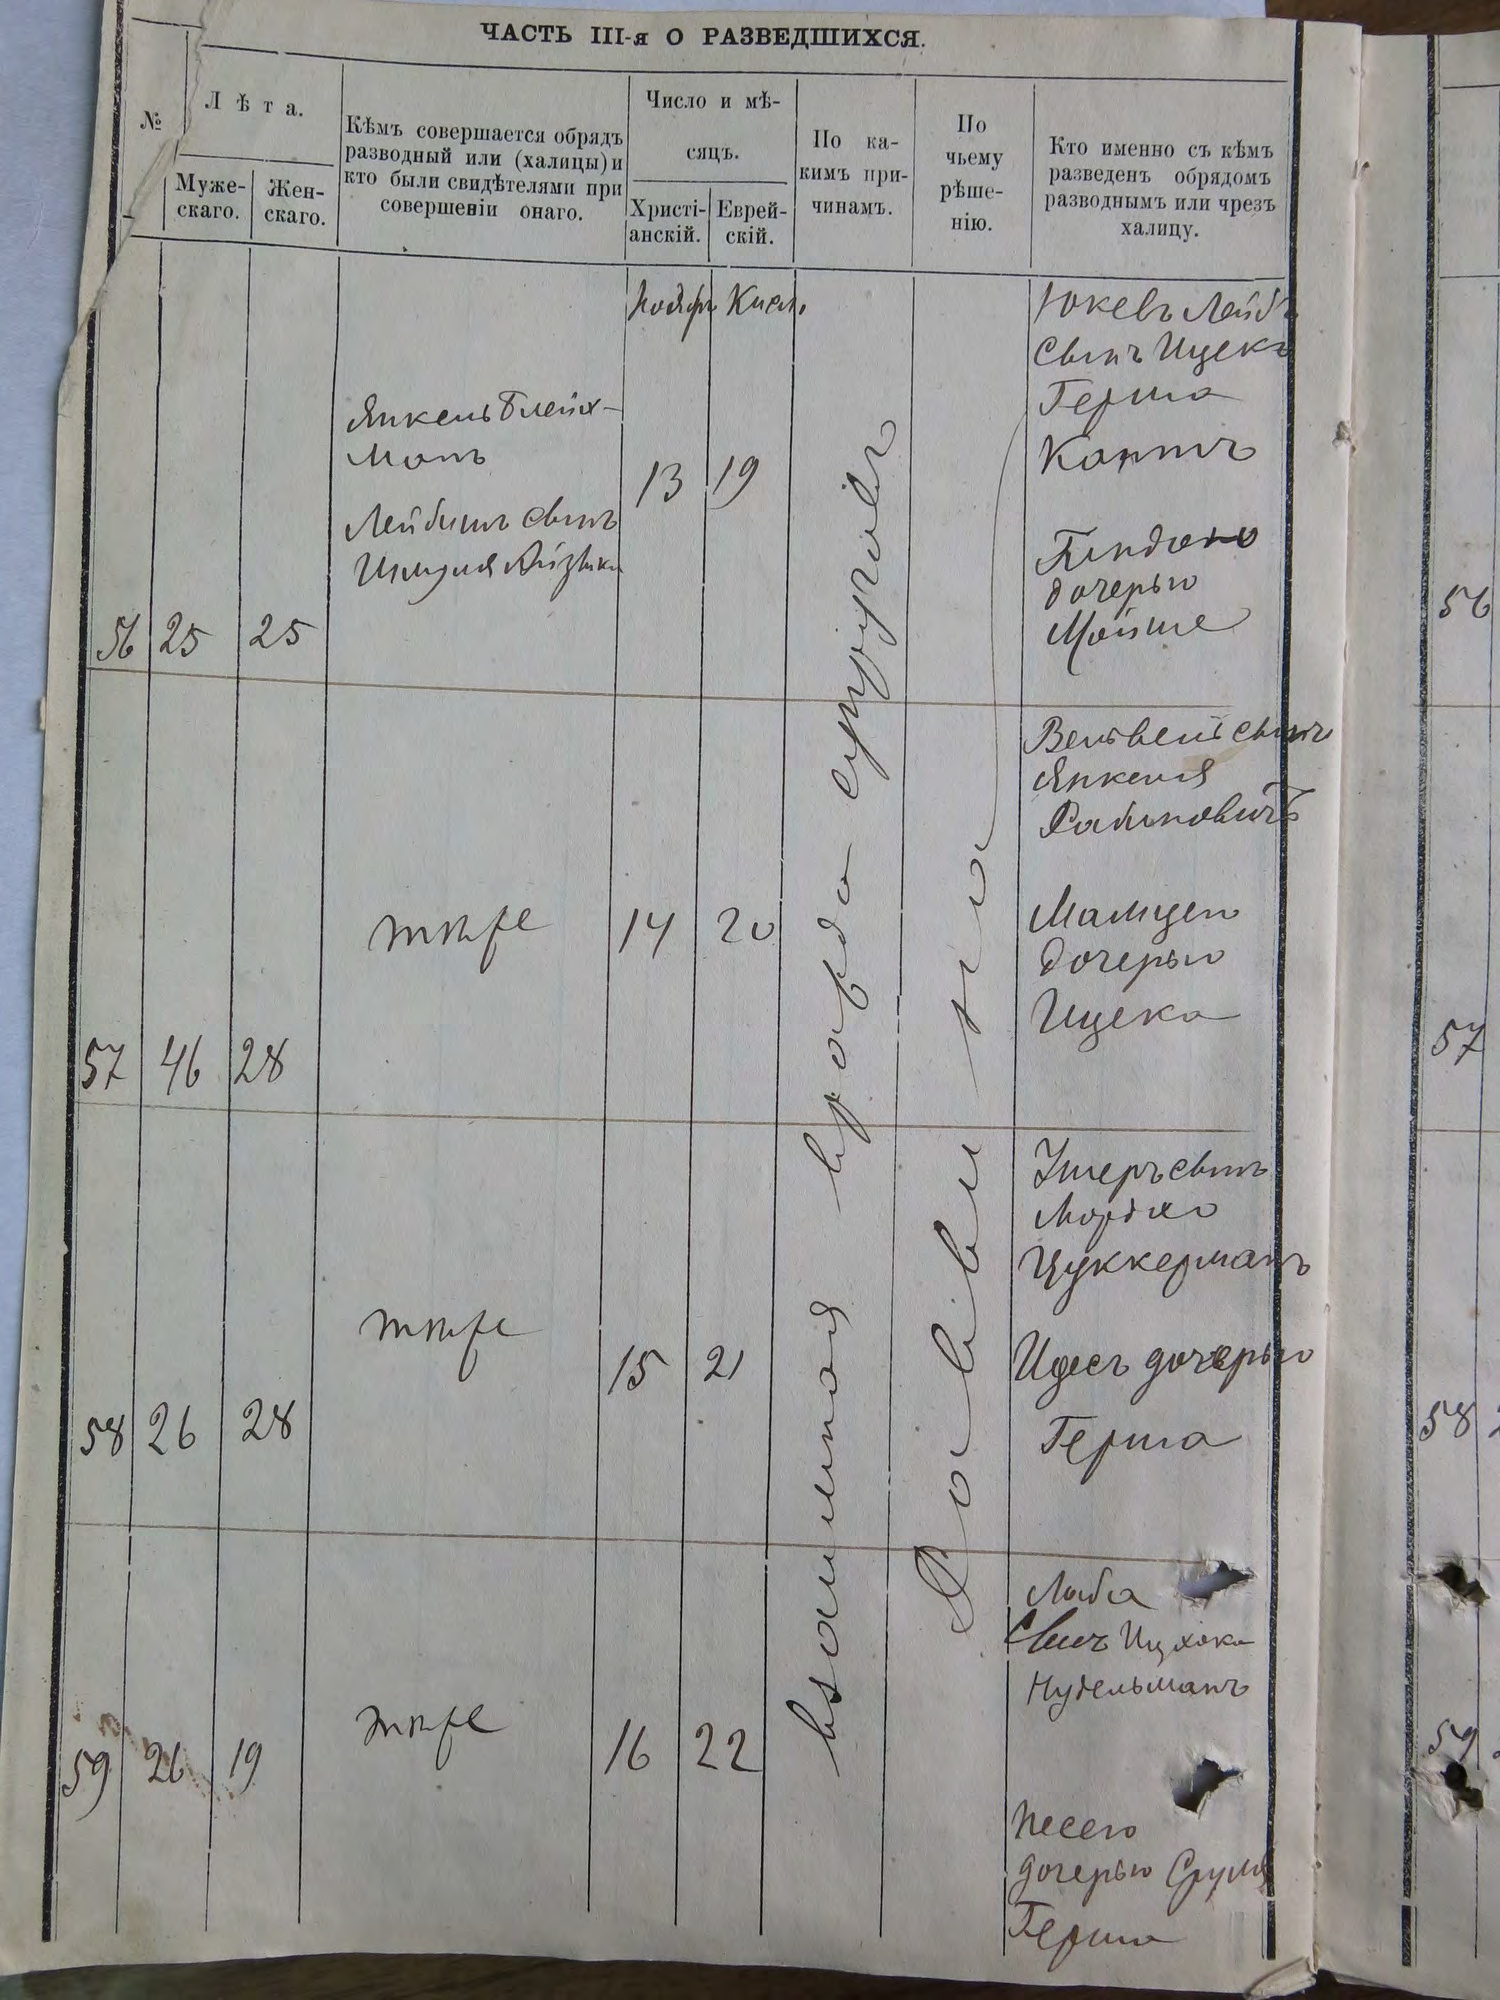 ЧАСТЬ III-я О РАЗВЕДШИХСЯ.
№
Лѣта.
Муже-
скаго.
Жен-
скаго.
Кѣмъ совершается обрядъ
разводный или (халицы) и
кто были свидѣтелями при
совершеніи онаго.
Число и мѣ-
сяцъ.
Христі-
анскій.
Еврей-
скій.
По ка-
кимъ при-
чинамъ.
По
чьему
рѣше-
нію.
Кто именно съ кѣмъ
разведенъ обрядомъ
разводнымъ или чрезъ
халицу.
56
25
25
Янкель Блейх-
манъ
Лейбишъ сынъ
Шмуля Айзыка
Ноябр
Кисл.
13
19
взаимная вражда супруговъ
Раввина
Юкевъ Лейбъ
сынъ Ицека
Герша
дочерью
Мойше
57
46
28
тоже
14
20
Вельвель сынъ
Янкеля
Рабиновичъ
дочерью
Ицека
58
26
28
тоже
15
21
Ушеръ сынъ
Мордко
Цуккерманъ
дочерью
Герша
59
26
19
тоже
16
22
Лыба
Сынъ Ицхока
Нудельманъ
Песею
дочерью Сруля
Герша
56
57
58
59